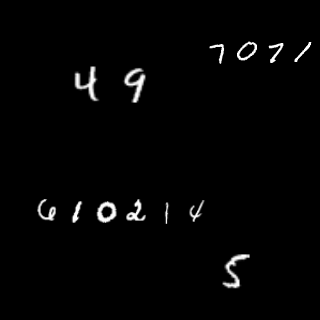 7071
49
610214
5